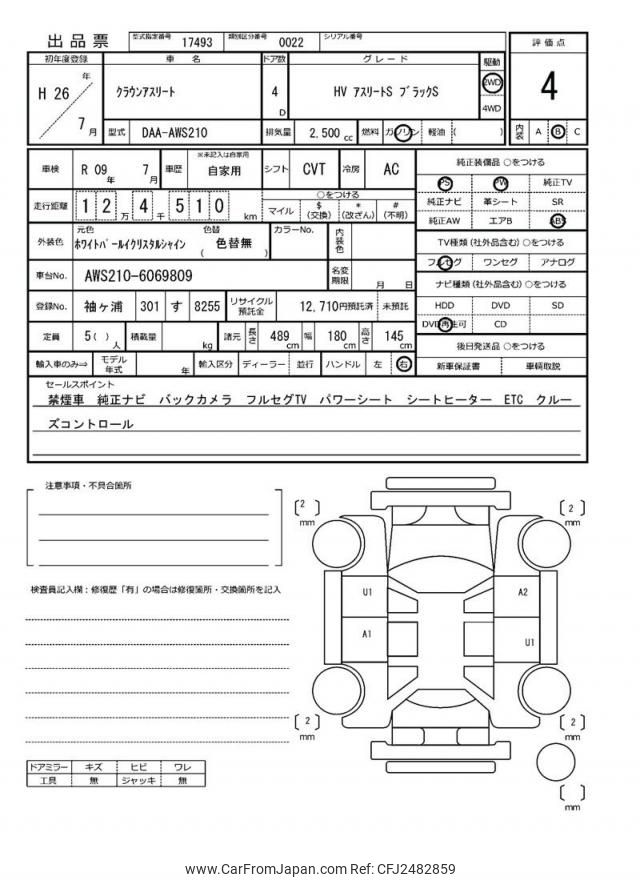 出品票
型式指定番号 17493 類別区分番号 0022 シリアル番号
初年度登録 車名 ドア数 グレード 駆動 評価点
H 26 年 7 月 クラウンアスリート 4 D HV アスリートS ブラックS 2WD 4WD 4
型式 DAA-AWS210 排気量 2,500 cc 燃料 ガソリン 軽油 ( ) 内装 A B C
車検 R 09 年 7 月 車歴 ※未記入は自家用 自家用 シフト CVT 冷房 AC
走行距離 1 2 万 4 千 5 1 0 km ○をつける
マイル $ (交換) * (改ざん) # (不明)
外装色 元色 ホワイトパールイクリスタルシャイン 色替 ( 色替無 ) カラーNo. 内装色
車台No. AWS210-6069809 名変期限 月 日
登録No. 袖ヶ浦 301 す 8255 リサイクル預託金 12,710 円預託済 未預託
定員 5 ( ) 人 積載量 kg 諸元 長さ 489 cm 幅 180 cm 高さ 145 cm
輸入車のみ⇒ モデル年式 年 輸入区分 ディーラー 並行 ハンドル 左 右
純正装備品 ○をつける
PS PW 純正TV
純正ナビ 革シート SR
純正AW エアB ABS
TV種類 (社外品含む) ○をつける
フルセグ ワンセグ アナログ
ナビ種類 (社外品含む) ○をつける
HDD DVD SD
DVD再生可 CD
後日発送品 ○をつける
新車保証書 車輌取説
セールスポイント
禁煙車 純正ナビ バックカメラ フルセグTV パワーシート シートヒーター ETC クルー
ズコントロール
注意事項・不具合箇所
検査員記入欄：修復歴「有」の場合は修復箇所・交換箇所を記入
[2] mm [2] mm
U1 A2
A1 U1
[2] mm [2] mm
[ ] mm
ドアミラー キズ ヒビ ワレ
工具 無 ジャッキ 無
www.CarFromJapan.com Ref: CFJ2482859